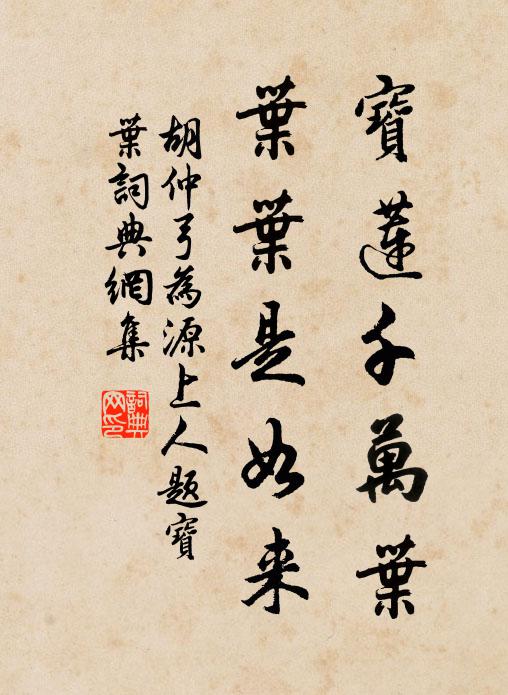 寶蓮千萬葉
葉葉是如来
胡仲弓為源上人題寶
葉詞典網集
詞典网印